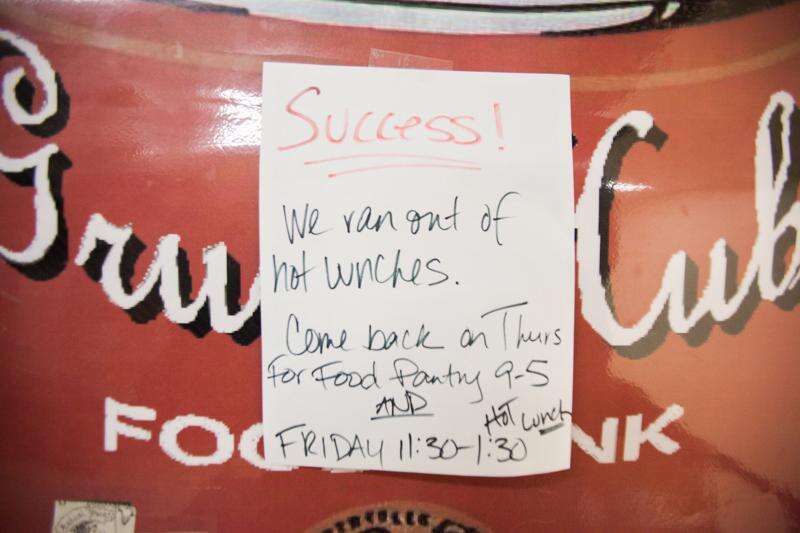 Success!
We ran out of
hot lunches.
Come back on Thurs
For Food Pantry 9-5
AND
Hot Lunch
FRIDAY 11:30-1:30
Gru Cub
FOO NK